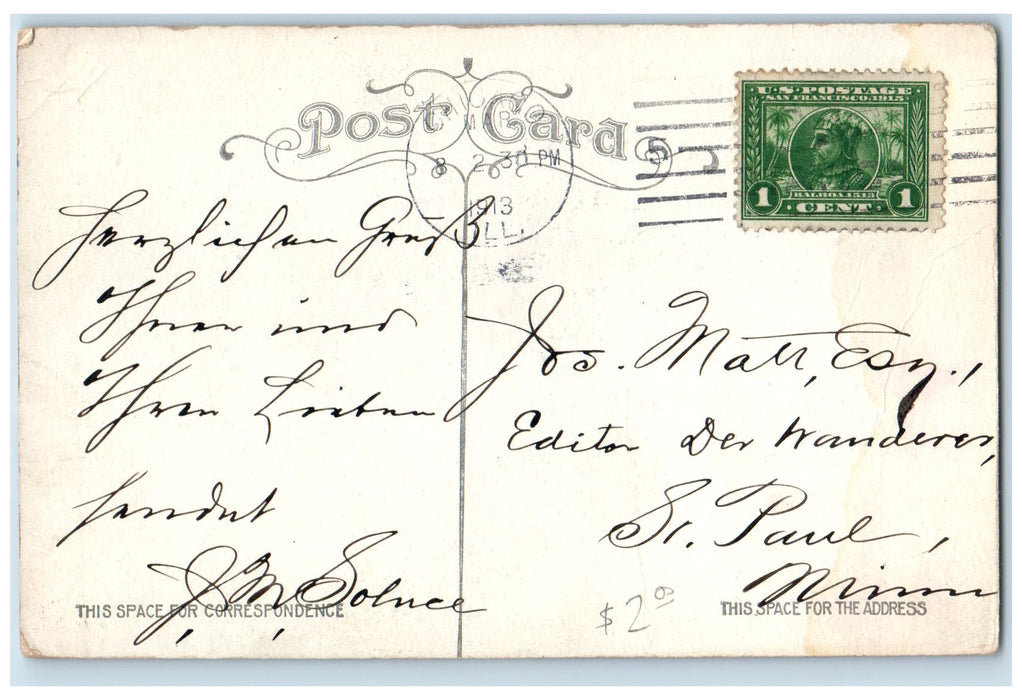 Post Card
8 2 30 PM
1913
ILL.
5
U.S. POSTAGE
SAN FRANCISCO 1915
BALBOA 1513
1 CENT 1
Herzlichen Gruß
Ihnen und
Ihren Lieben
sendet
J. M.
Jos. Matt, Esq.,
Editor Der Wanderer,
St. Paul,
Minn
THIS SPACE FOR CORRESPONDENCE
THIS SPACE FOR THE ADDRESS
$2.03